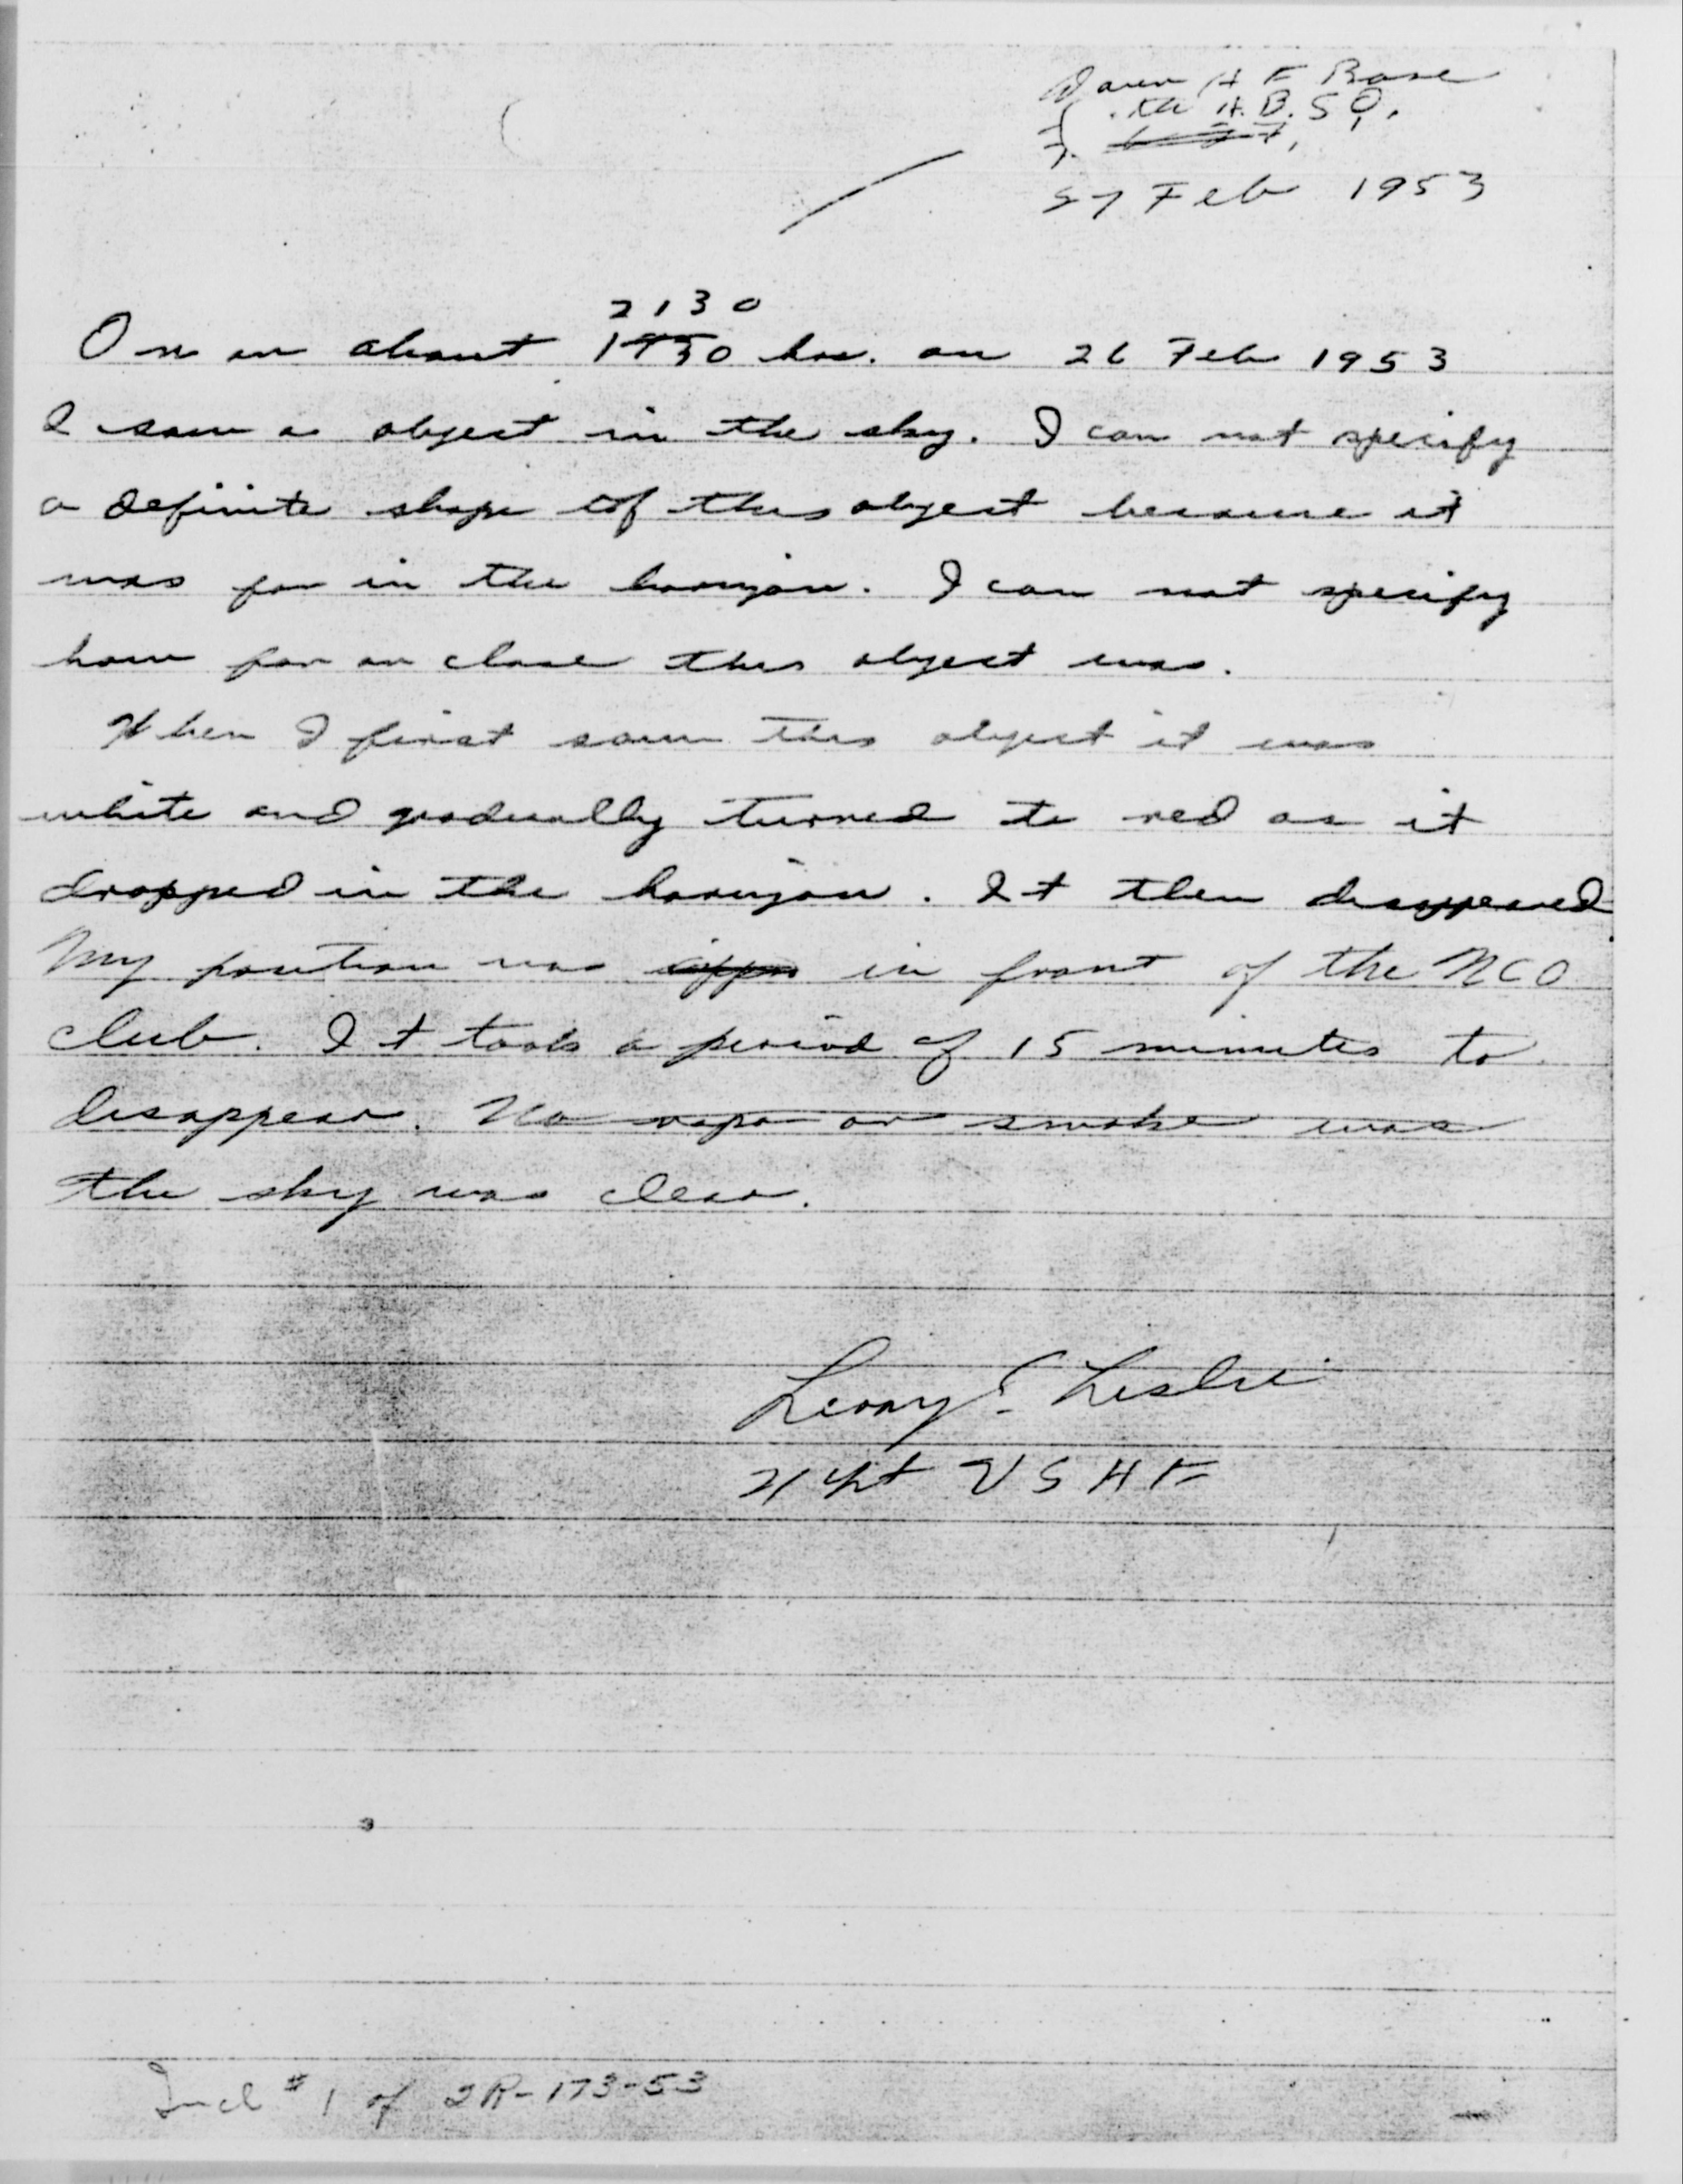 A F Base
A. B. S Q.
27 Feb 1953
2130
On or about 1930 hrs. on 26 Feb 1953
I saw a object in the sky. I can not specify
a definite shape of this object because it
was far in the horizon. I can not specify
how far or close this object was.
When I first saw this object it was
white and gradually turned to red as it
dropped in the horizon. It then disappeared
My position was in front of the NCO
club. It took a period of 15 minutes to
disappear. No vapor or smoke was
the sky was clear.
Leroy E. Leslie
USAF
Incl # 1 of IR-173-53